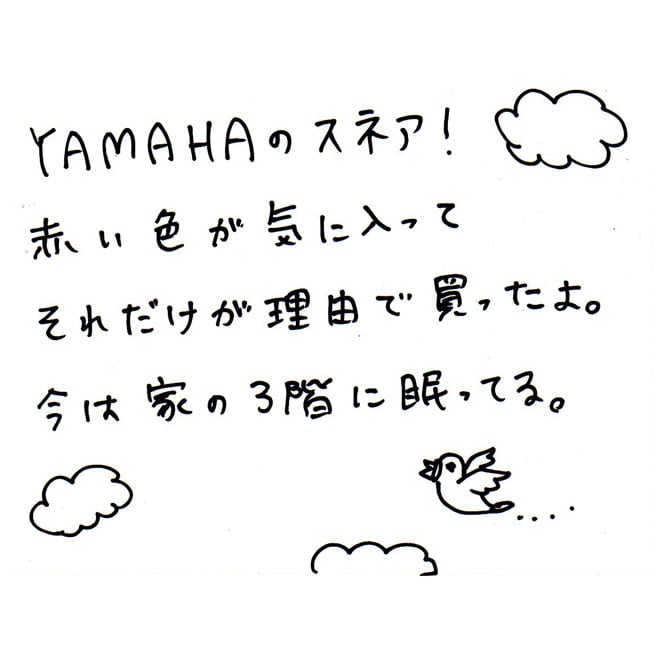 YAMAHAのスネア!
赤い色が気に入って
それだけが理由で買ったよ。
今は家の3階に眠ってる。